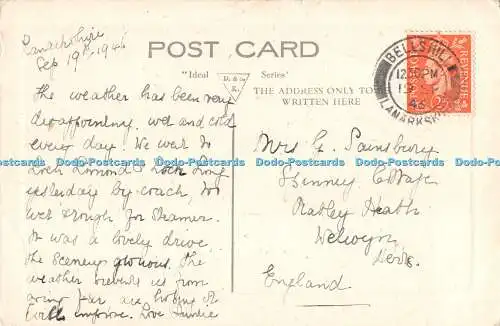 Lanarkshire
Sep 19th 1946
POST CARD
"Ideal Series"
D. & S.
K.
THE ADDRESS ONLY TO BE
WRITTEN HERE
BELLSHILL
12 30 PM
19 SE
46
LANARKSHIRE
REVENUE
The weather has been very
disappointing, wet and cold
every day. We went to
Loch Lomond & Loch Long
yesterday by coach, too
wet & rough for steamer.
It was a lovely drive
the scenery glorious. The
weather prevents us from
going far, are hoping it
will improve. Love Auntie
Mrs G. Sainsbury
Spinney Cottage
Rabley Heath
Welwyn
Herts
England
Postcards Postcards Postcards Postcards Postcards Postcards